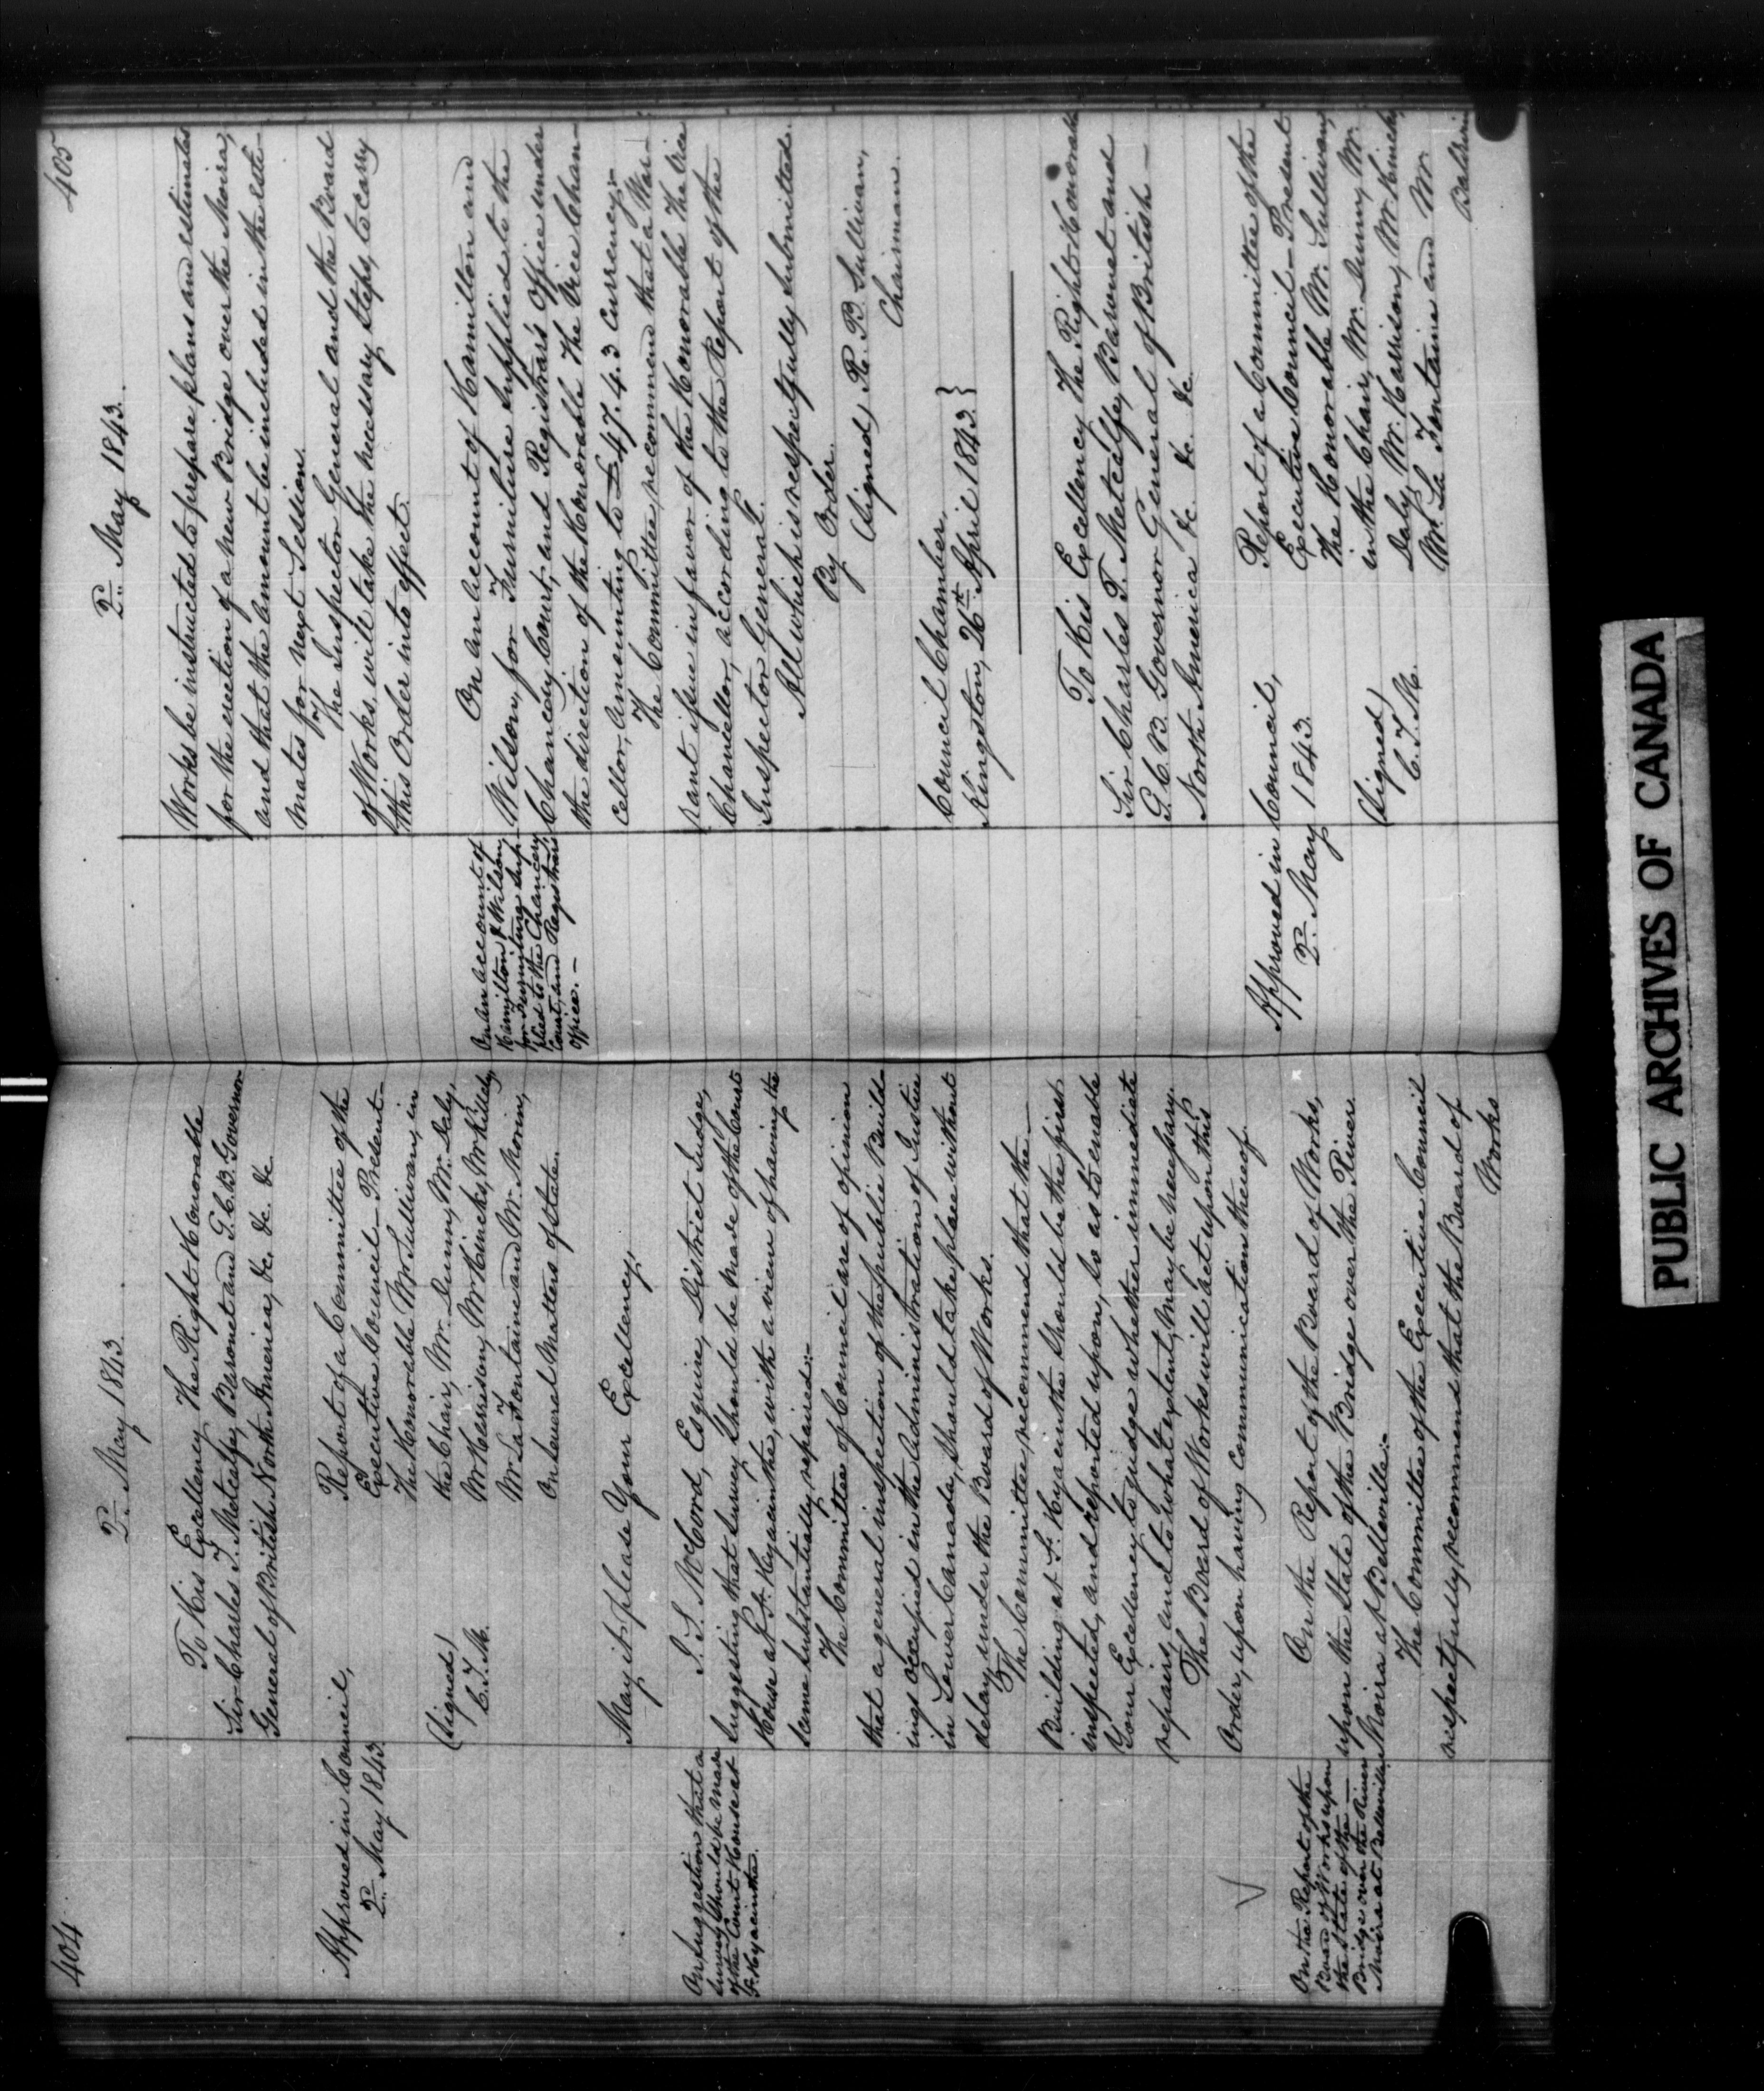 404
2d. May 1843.
To His Excellency The Right Honorable
Sir Charles T. Metcalfe, Baronet and G.C.B. Governor
General of British North America, &c. &c. &c.
Approved in Council,
2d. May 1843.
(Signed)
C. T. M.
Report of a Committee of the
Executive Council – Present –
The Honorable Mr. Sullivan, in
the Chair, Mr. Dunn, Mr. Daly,
Mr Harrison, Mr Hincks, Mr Killaly,
Mr La Fontaine and Mr. Morin,
On Several Matters of State.
May it please Your Excellency,
On Suggestion that a
Survey should be made
of the Court House at
St. Hyacinthe.
J. S. McCord, Esquire, District Judge,
Suggesting that Survey should be made of the Court
House at St. Hyacinthe, with a view of having the
same substantially repaired:-
The Committee of Council are of opinion
that a general inspection of the public Build-
ings occupied in the Administration of Justice
in Lower Canada, should take place without
delay, under the Board of Works.
The Committee, recommend that the –
Building at St. Hyacinthe should be the first
inspected, and reported upon, so as to enable
Your Excellency to judge whether immediate
repairs, and to what extent, may be necessary.
The Board of Works will act upon this
Order, upon having communication thereof.
On the Report of the
Board of Works upon
the State of the –
Bridge over the River
Moira at Belleville
On the Report of the Board of Works,
upon the State of the Bridge over the River
Moira at Belleville:-
The Committee of the Executive Council
respectfully recommend that the Board of
Works
405
2d. May 1843.
Works be instructed to prepare plans and estimates
for the erection of a new Bridge over the Moira,
and that the amount be included in the Esti-
mates for next Session.
The Inspector General and the Board
of Works will take the necessary steps, to carry
this Order into effect.
On an account of
Hamilton & Wilson,
for Furniture Sup-
plied to the Chancery
Court, and Registrar's
Office. –
On an account of Hamilton and
Wilson, for Furniture supplied to the
Chancery Court, and Registrar's Office under
the direction of the Honorable The Vice Chan-
cellor, amounting to £47. 4. 3 Currency:-
The Committee, recommend that a War-
rant issue in favor of the Honorable The Vice
Chancellor, according to the Report of the
Inspector General.
All which is respectfully submitted.
By Order.
(Signed) R. B. Sullivan,
Chairman.
Council Chamber,
Kingston, 26th April 1843. }
To His Excellency The Right Honorable
Sir Charles T. Metcalfe, Baronet and
G.C.B. Governor General of British –
North America &c. &c. &c.
Approved in Council,
2d. May 1843.
(Signed)
C. T. M.
Report of a Committee of the
Executive Council – Present
The Honorable Mr. Sullivan,
in the Chair, Mr. Dunn, Mr.
Daly, Mr. Harrison, Mr. Hincks,
Mr. La Fontaine and Mr.
Baldwin
PUBLIC ARCHIVES OF CANADA